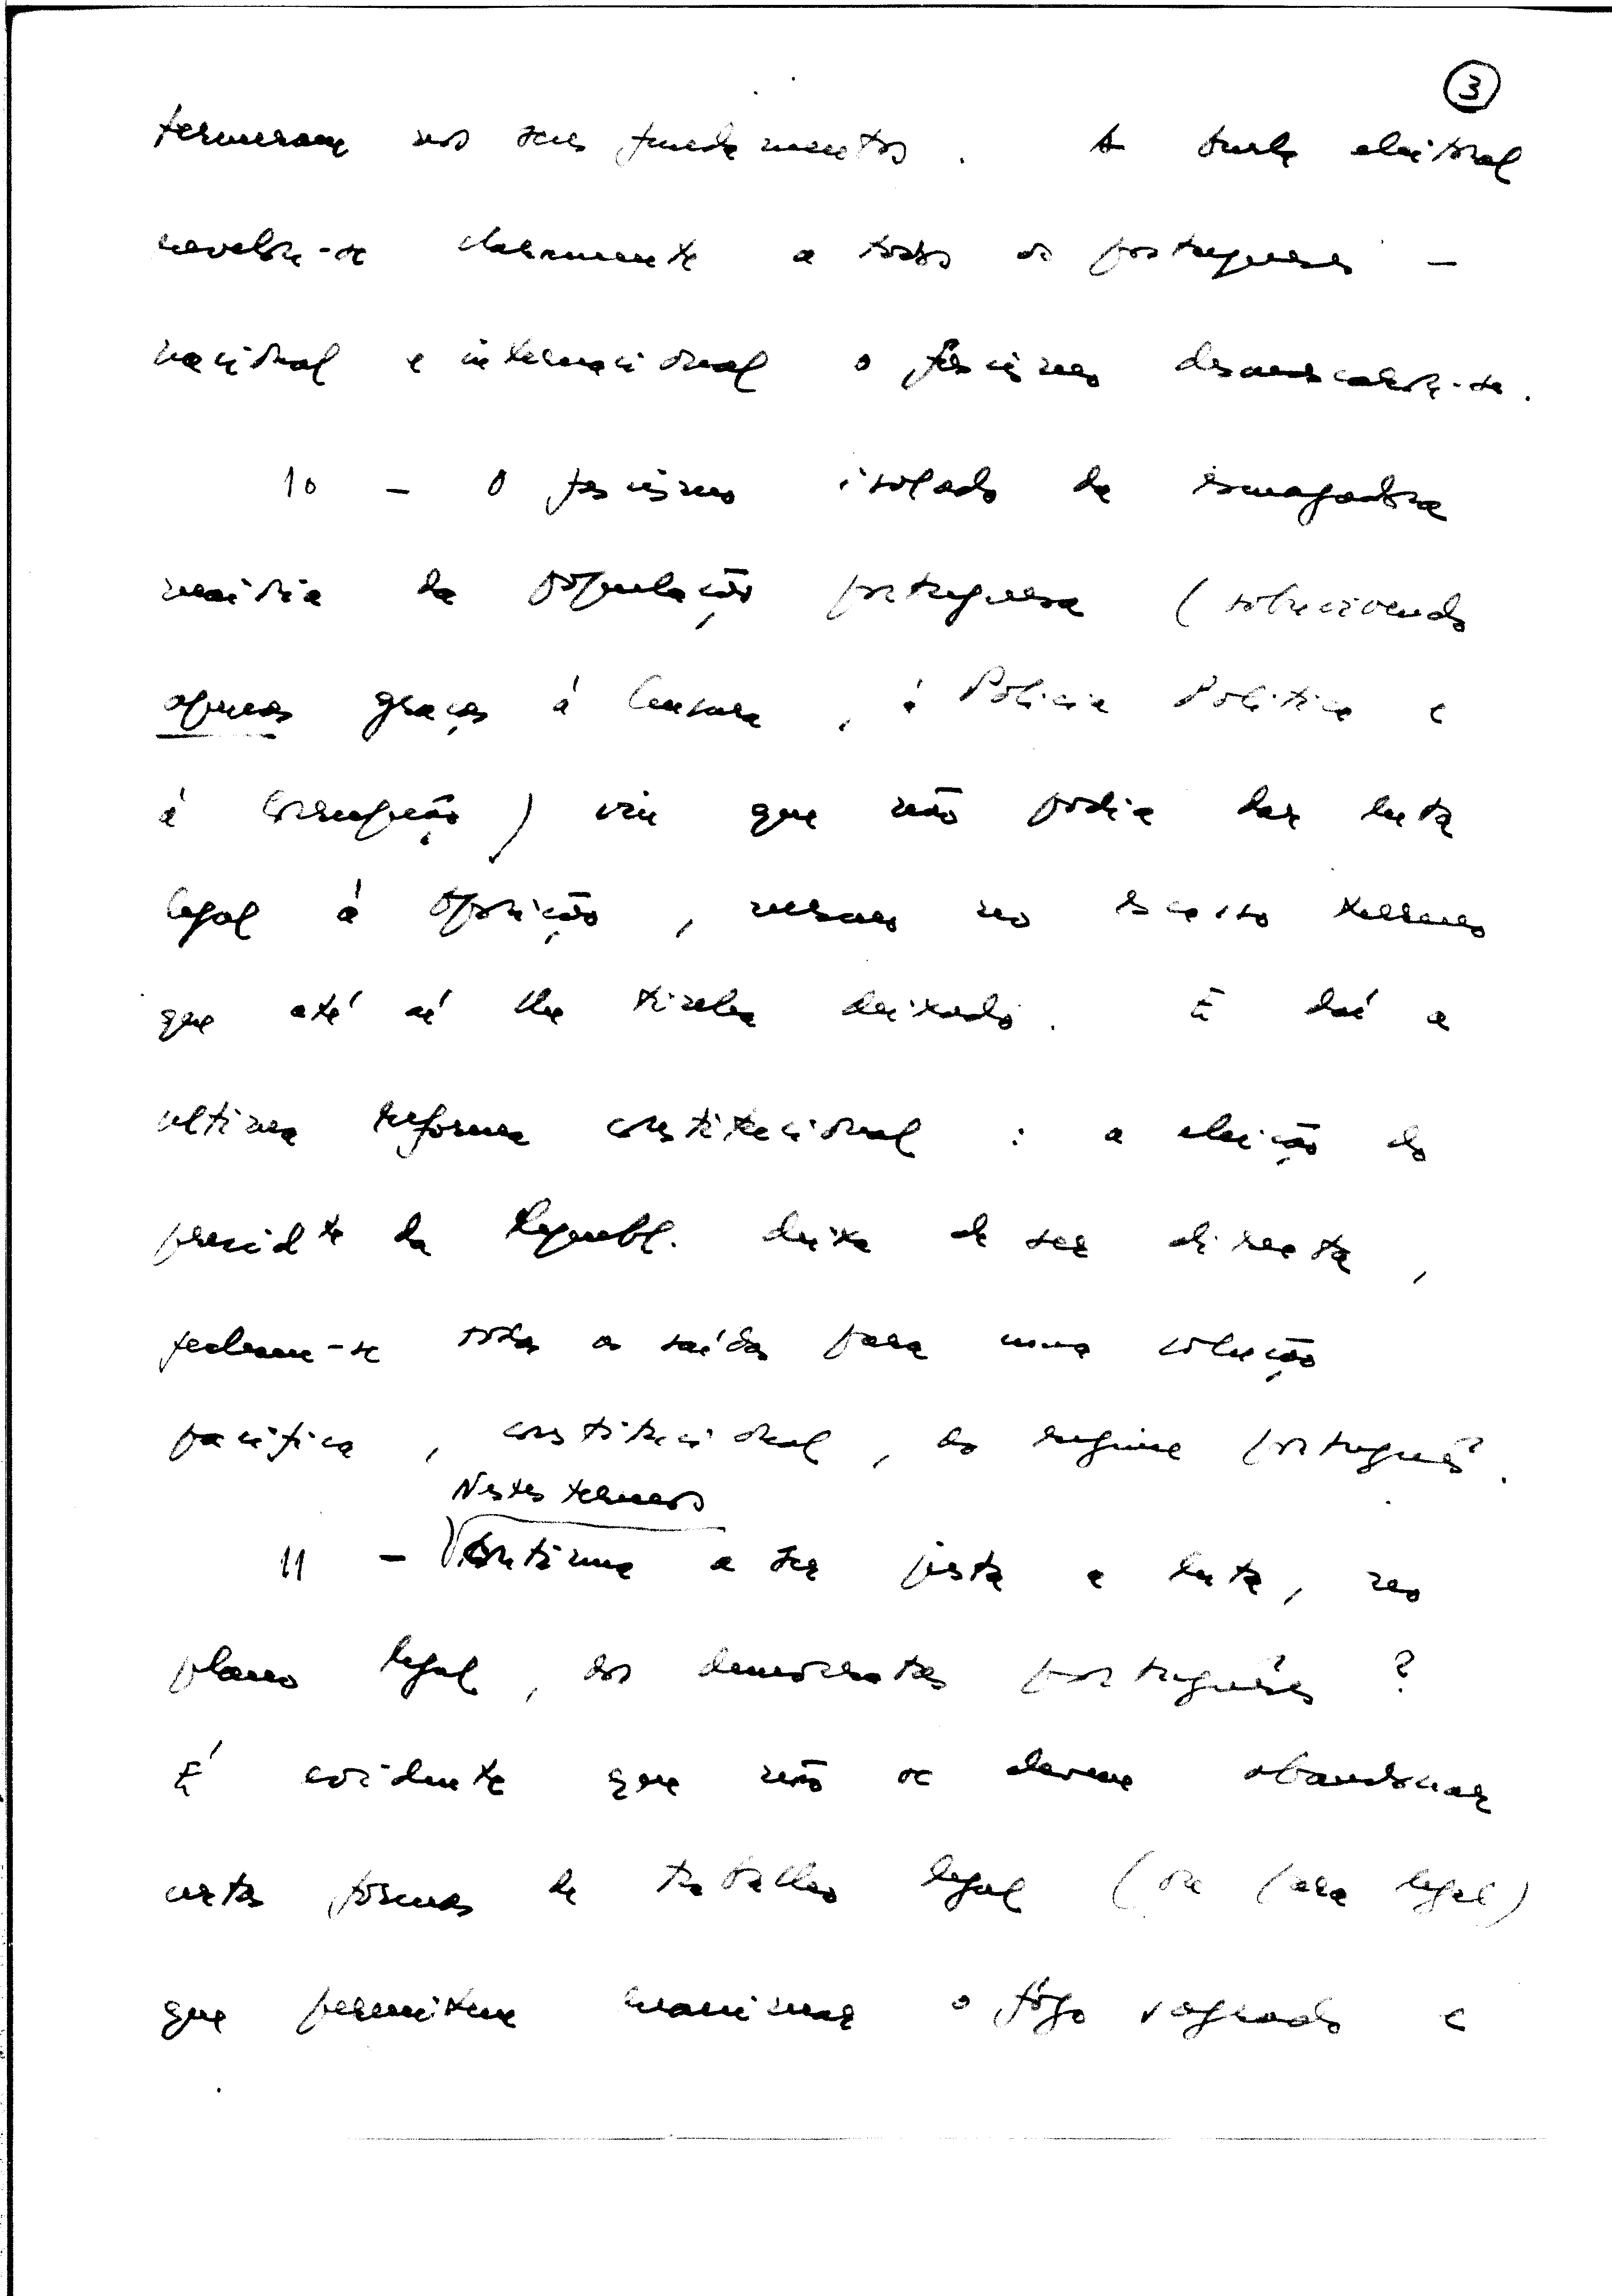 3
tremeram nos seus fundamentos. A burla eleitoral
revelou-se claramente a todos os portugueses —
nacional e internacional o fascismo desmascarou-se.
10 — O fascismo isolado da esmagadora
maioria da população portuguesa (sobrevivendo
apenas graças á Censura, á Policia Politica e
á Corrupção) viu que não podia dar luta
legal á Oposição, mesmo no escasso terreno
que até aí lhe tinha deixado. E daí a
ultima reforma constitucional: a eleição do
presidte da Republ. deixa de ser directa,
fecham-se todas as saídas para uma solução
pacifica, constitucional, do regime português.
Nestes termos
11 — Continua a ser justa a luta, no
plano legal, dos democratas portuguêses?
É evidente que não se devem abandonar
certas formas de trabalho legal (ou para legal)
que permitem reanimar o fôgo sagrado e